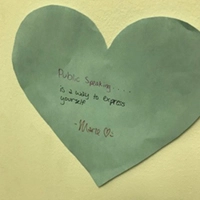 Public Speaking....
is a way to express
yourself